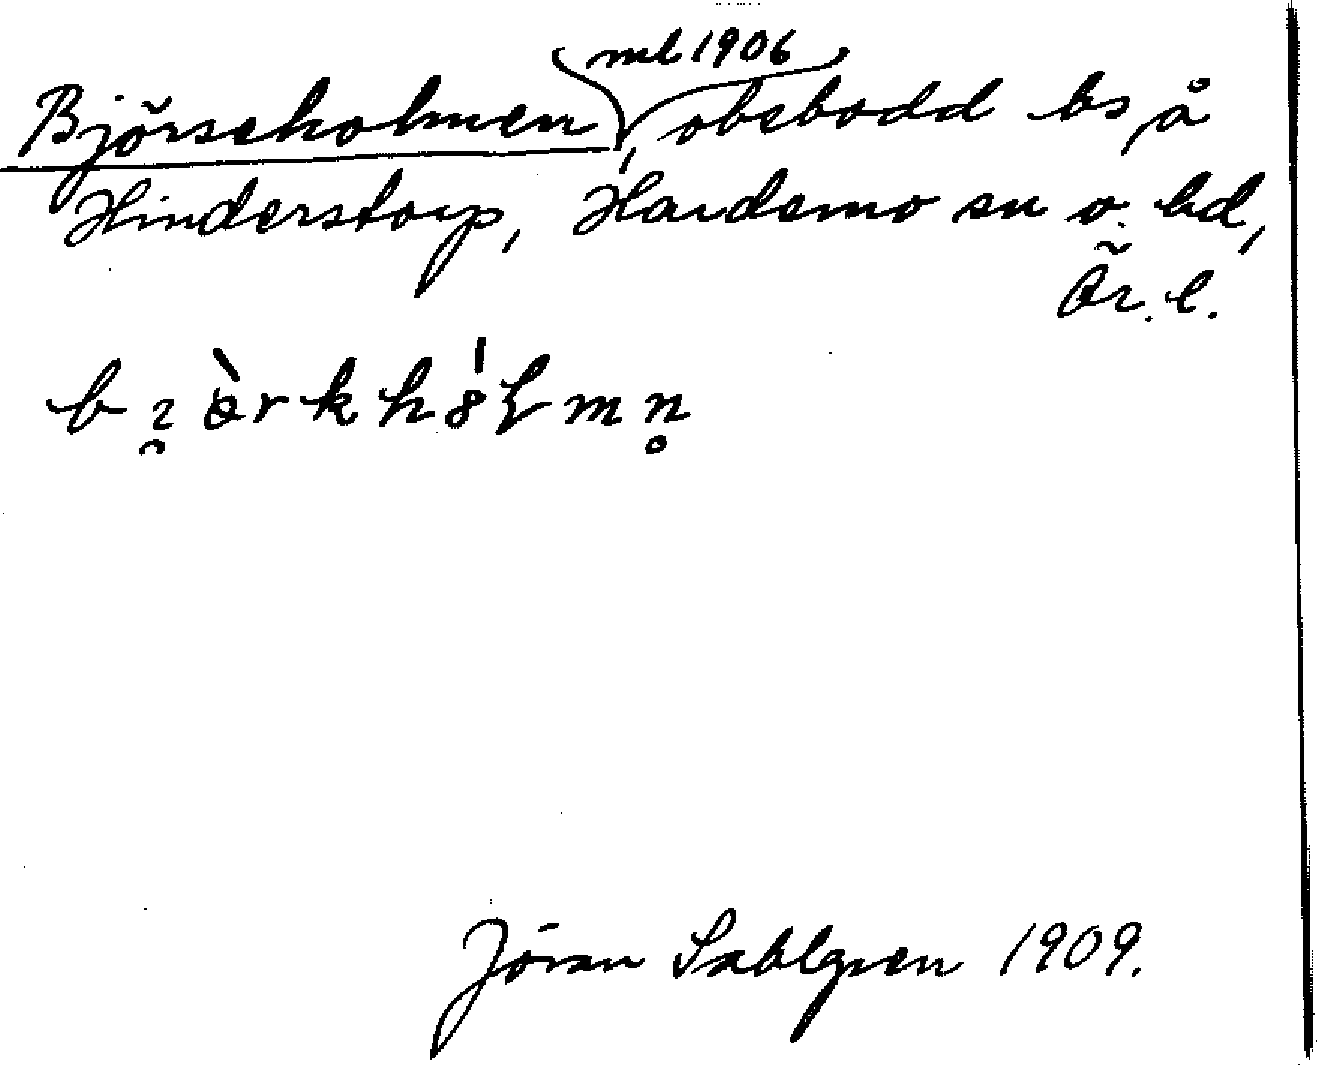 ml 1906
Björseholmen, obebodd bs å
Hinderstorp, Hardemo sn o. hd,
Ör. l.
Jöran Sahlgren 1909.